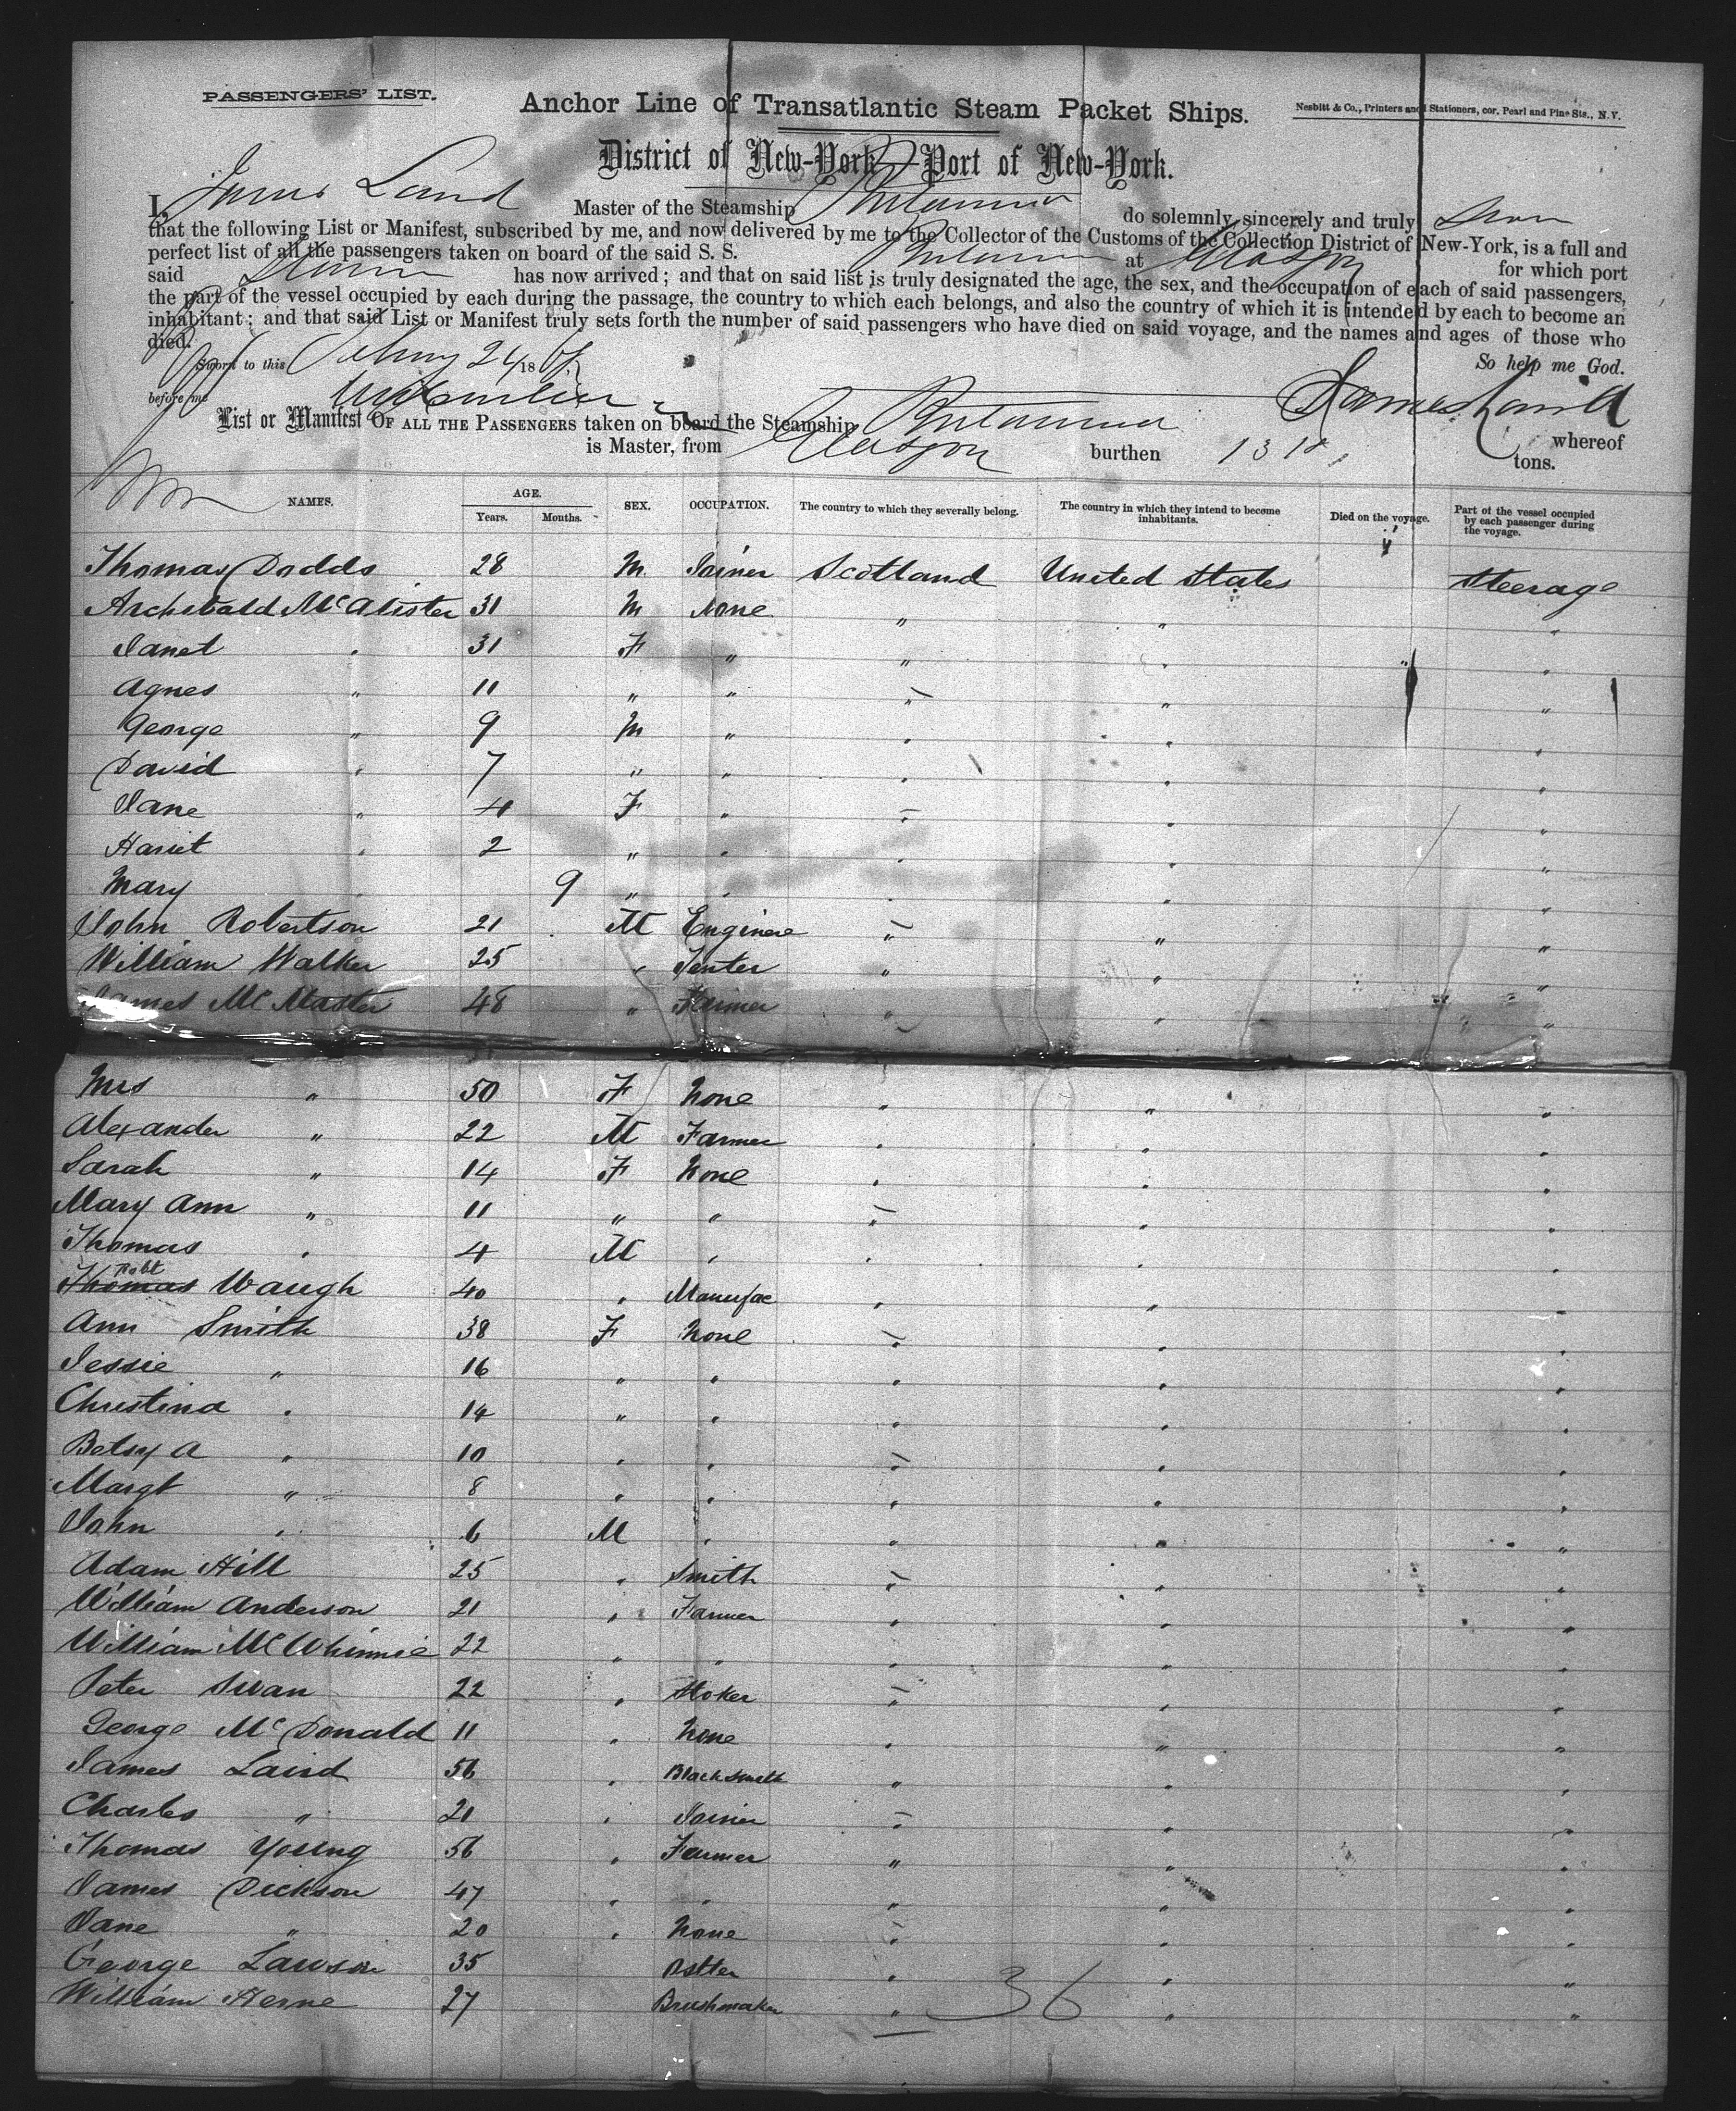 PASSENGERS' LIST.
Anchor Line of Transatlantic Steam Packet Ships.
Nesbitt & Co., Printers and Stationers, cor. Pearl and Pine Sts., N.Y.
District of New-York—Port of New-York.
I, James Laird Master of the Steamship Britannia do solemnly, sincerely and truly swear
that the following List or Manifest, subscribed by me, and now delivered by me to the Collector of the Customs of the Collection District of New-York, is a full and
perfect list of all the passengers taken on board of the said S. S. Britannia at Glasgow for which port
said Steamer has now arrived; and that on said list is truly designated the age, the sex, and the occupation of each of said passengers,
the part of the vessel occupied by each during the passage, the country to which each belongs, and also the country of which it is intended by each to become an
inhabitant; and that said List or Manifest truly sets forth the number of said passengers who have died on said voyage, and the names and ages of those who
died.
So help me God.
Sworn to this 24 18
before me
James Laird
List or Manifest OF ALL THE PASSENGERS taken on board the Steamship Britannia whereof
is Master, from Glasgow burthen tons.
NAMES. AGE. SEX. OCCUPATION. The country to which they severally belong. The country in which they intend to become inhabitants. Died on the voyage. Part of the vessel occupied by each passenger during the voyage.
Years. Months.
Thomas Dodds 28 M Joiner Scotland United States Steerage
Archibald McAlister 31 M None " " "
Janet " 31 F " " " "
Agnes " 11 " " " " "
George " 9 M " " " "
David " 7 " " " " "
Jane " 4 F " " " "
Hariet " 2 " " " " "
Mary " 9 " " " " "
John Robertson 21 M Enginere " " "
William Walker 25 " Tenter " " "
James McMaster 48 " Farmer " " "
Mrs " 50 F None " " "
Alexander " 22 M Farmer " " "
Sarah " 14 F None " " "
Mary Ann " 11 " " " " "
Thomas " 4 M " " " "
Robt
Thomas Waugh 40 " Manufac " " "
Ann Smith 38 F None " " "
Jessie " 16 " " " " "
Christina " 14 " " " " "
Betsy A " 10 " " " " "
Margt " 8 " " " " "
John " 6 M " " " "
Adam Hill 25 " Smith " " "
William Anderson 21 " Farmer " " "
William McWhinnie 22 " " " " "
Peter Swan 22 " Stoker " " "
George McDonald 11 " None " " "
James Laird 56 " Blacksmith " " "
Charles " 21 " Joiner " " "
Thomas Young 56 " Farmer " " "
James Dickson 47 " " " " "
Jane " 20 " None " " "
George Lawson 35 " " "
William Herne 27 Brushmaker " " "
36